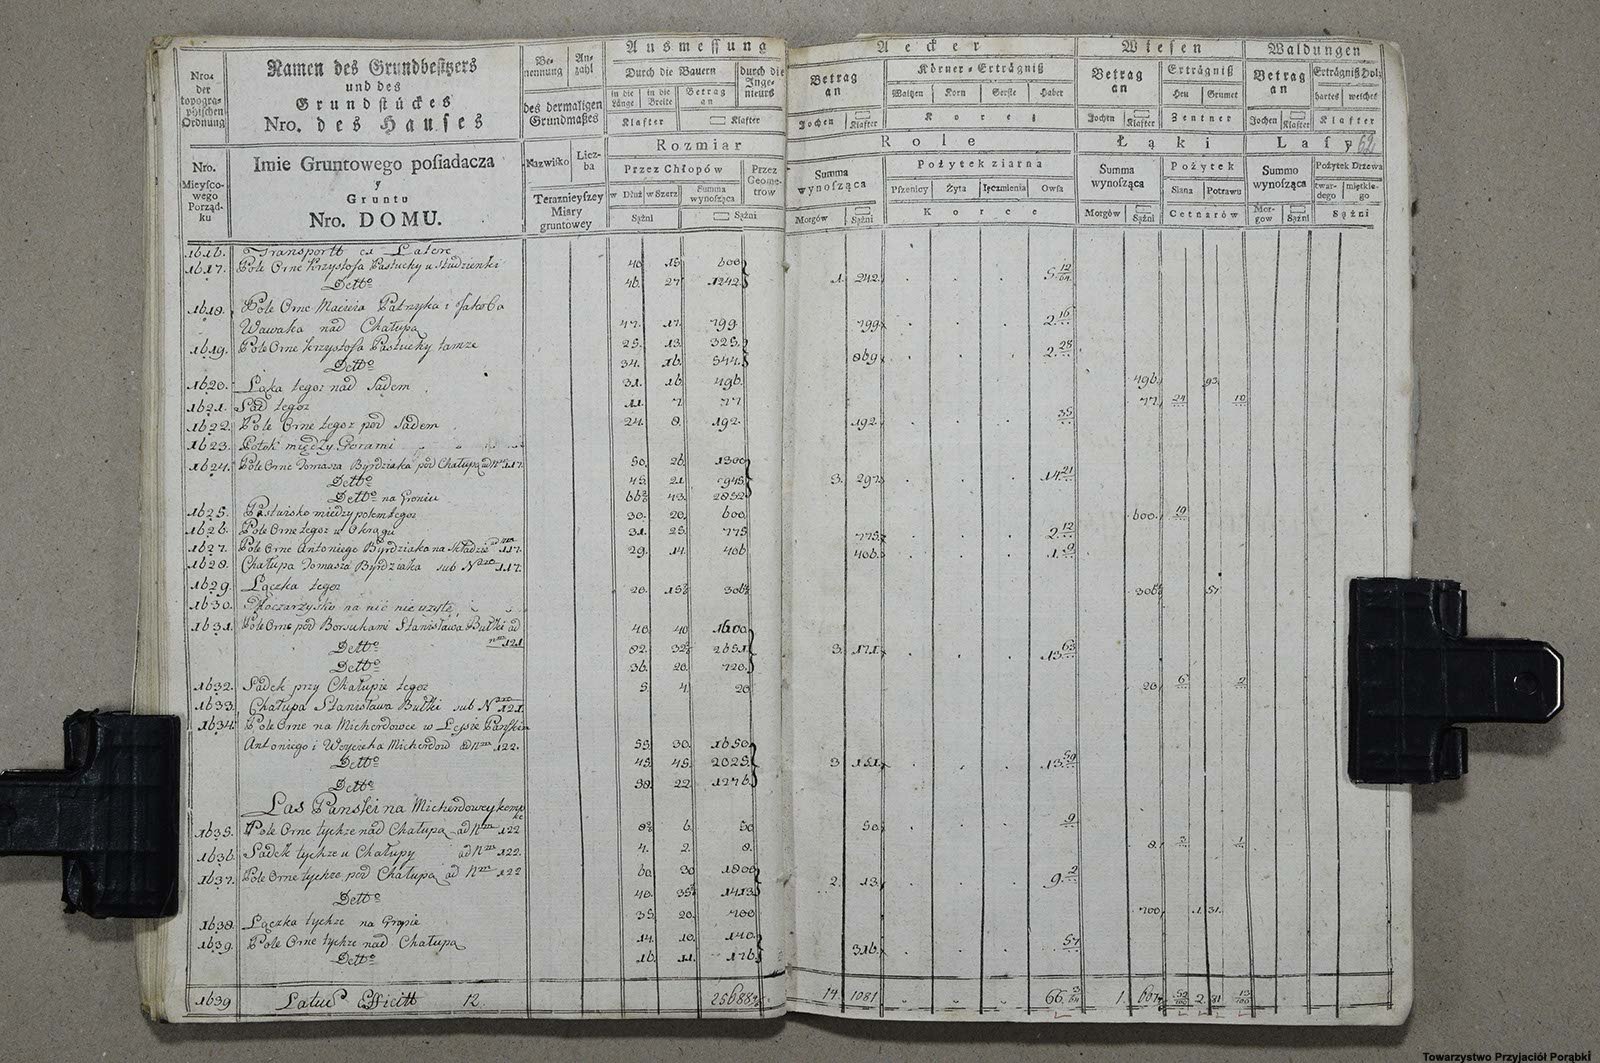 Nro. der topogra- phischen Ordnung
Namen des Grundbesitzers
und des
Grundstückes
Nro. des Hauses
Be- nennung
An- zahl
des dermaligen Grundmaßes
Ausmessung
Durch die Bauern
durch die Inge- nieurs
in die Länge
in die Breite
Betrag an
Klafter
Klafter
Aecker
Betrag an
Jochen
Klafter
Körner-Erträgniß
Waitzen
Korn
Gerste
Haber
Korez
Wiesen
Betrag an
Jochen
Klafter
Erträgniß
Heu
Grumet
Zentner
Waldungen
Betrag an
Jochen
Klafter
Erträgniß Holz
hartes
weiches
Klafter
Nro. Mieysco- wego Porząd- ku
Imie Gruntowego posiadacza
y
Gruntu
Nro. DOMU.
Nazwisko
Licz- ba
Teraznieyszey Miary gruntowey
Rozmiar
Przez Chłopów
Przez Geome- trow
w Dłuż
w Szerz
Summa wynosząca
Sążni
Sążni
Role
Summa wynosząca
Morgów
Sążni
Pożytek ziarna
Pszenicy
Żyta
Jęczmienia
Owsa
Korce
Łąki
Summa wynosząca
Morgów
Sążni
Pożytek
Siana
Potrawu
Cetnarów
Lasy 62
Summo wynosząca
Mor- gow
Sążni
Pożytek Drzewa
twar- dego
miętkie- go
Sążni
1616. Transportt ex Latere
1617. Pole Orne Krzysztofa Pastuchy u studzienki 40. 15. 600
Detto 46. 27. 1242. 1. 242. 5 12/64
1618. Pole Orne Macieia Patrzyka i Jakoba
Wawaka nad Chałupą 47. 17. 799. 799. 2 16
1619. Pole Orne Krzysztofa Pastuchy tamże 25. 13. 325.
Detto 34. 16. 544. 869. 2 28
1620. Łąka tegoz nad Sadem 31. 16. 496. 496. 93.
1621. Sad tegoz 11. 7. 77 77. 24 10
1622. Pole Orne tegoz pod Sadem 24. 8. 192. 192. 35
1623. Potok między Gorami
1624. Pole Orne Tomasza Byrdziaka pod Chałupą ad Nm 117. 50. 26. 1300
Detto 45. 21. 945. 3. 297. 14 21
Detto na Groniu 43. 2852
1625. Pastwisko miedzy polem tegoz 30. 20. 600 600. 19
1626. Pole Orne tegoz w Okrągu 31. 25. 775 775. 2 12
1627. Pole Orne Antoniego Byrdziaka na Składzie ad Nm 117. 29. 14. 406 406. 1. 9
1628. Chałupa Tomasza Byrdziaka sub Nro 117.
1629. Łączka tegoz 20. 57.
1630. na nic nie uzyte
1631. Pole Orne pod Borsukami Stanisława Bułki ad Nm 121 40. 40. 1600
Detto 82. 2651. 3. 171. 13 63
Detto 36. 20. 720.
1632. Sadek przy Chałupie tegoz 5. 4. 20 20. 6 2
1633. Chałupa Stanisława Bułki sub Nro 121.
1634. Pole Orne na Micherdowce w Lesie Pańskim
Antoniego i Woyciecha Micherdow ad Nm 122. 55. 30. 1650
Detto 45. 45. 2025. 3. 151. 13 50
Detto 58. 22. 1276.
Las Pański na Micherdowcy
1635. Pole Orne tychze nad Chałupą ad Nm 122 6. 50 50. 9
1636. Sadek tychze u Chałupy ad Nm 122. 4. 2. 8. 8. 3 1
1637. Pole Orne tychze pod Chałupą ad Nm 122 60. 30 1800 2. 13. 9. 2
Detto 40. 1413
1638. Łączka tychze na Gropie 35. 20. 700 700. 1. 31.
1639. Pole Orne tychze nad Chałupą 14. 10. 140.
Detto 16. 11. 176. 316. 57
1639 Latus Efficitt 12. 14. 1081 66 3/64 1. 607 2. 81 13/100
Towarzystwo Przyjaciół Porąbki